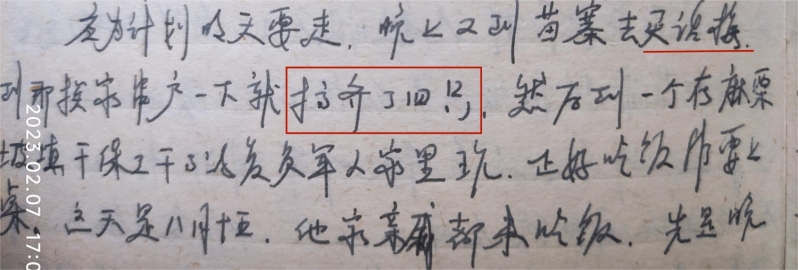 应为计划明天要走，晚上又到苗寨去买
到那挨家串户一下就搞齐了四，然后到一个在麻栗
坡镇干保工干了复员军人家里玩。正好吃饭要上
桌 这天是八月十五。他家亲戚都来吃饭，先是晚
2023.02.07 17:0